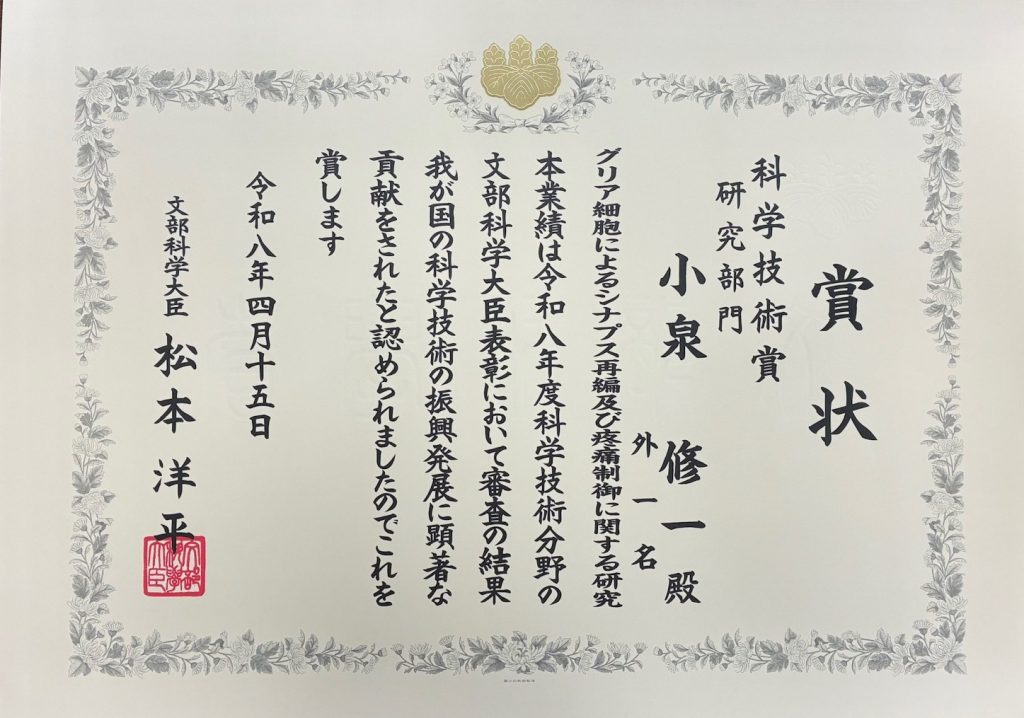 賞状
科学技術賞
研究部門
小泉 修一殿
外一名
グリア細胞によるシナプス再編及び疼痛制御に関する研究
本業績は令和八年度科学技術分野の
文部科学大臣表彰において審査の結果
我が国の科学技術の振興発展に顕著な
貢献をされたと認められましたのでこれを
賞します
令和八年四月十五日
文部科学大臣 松本洋平